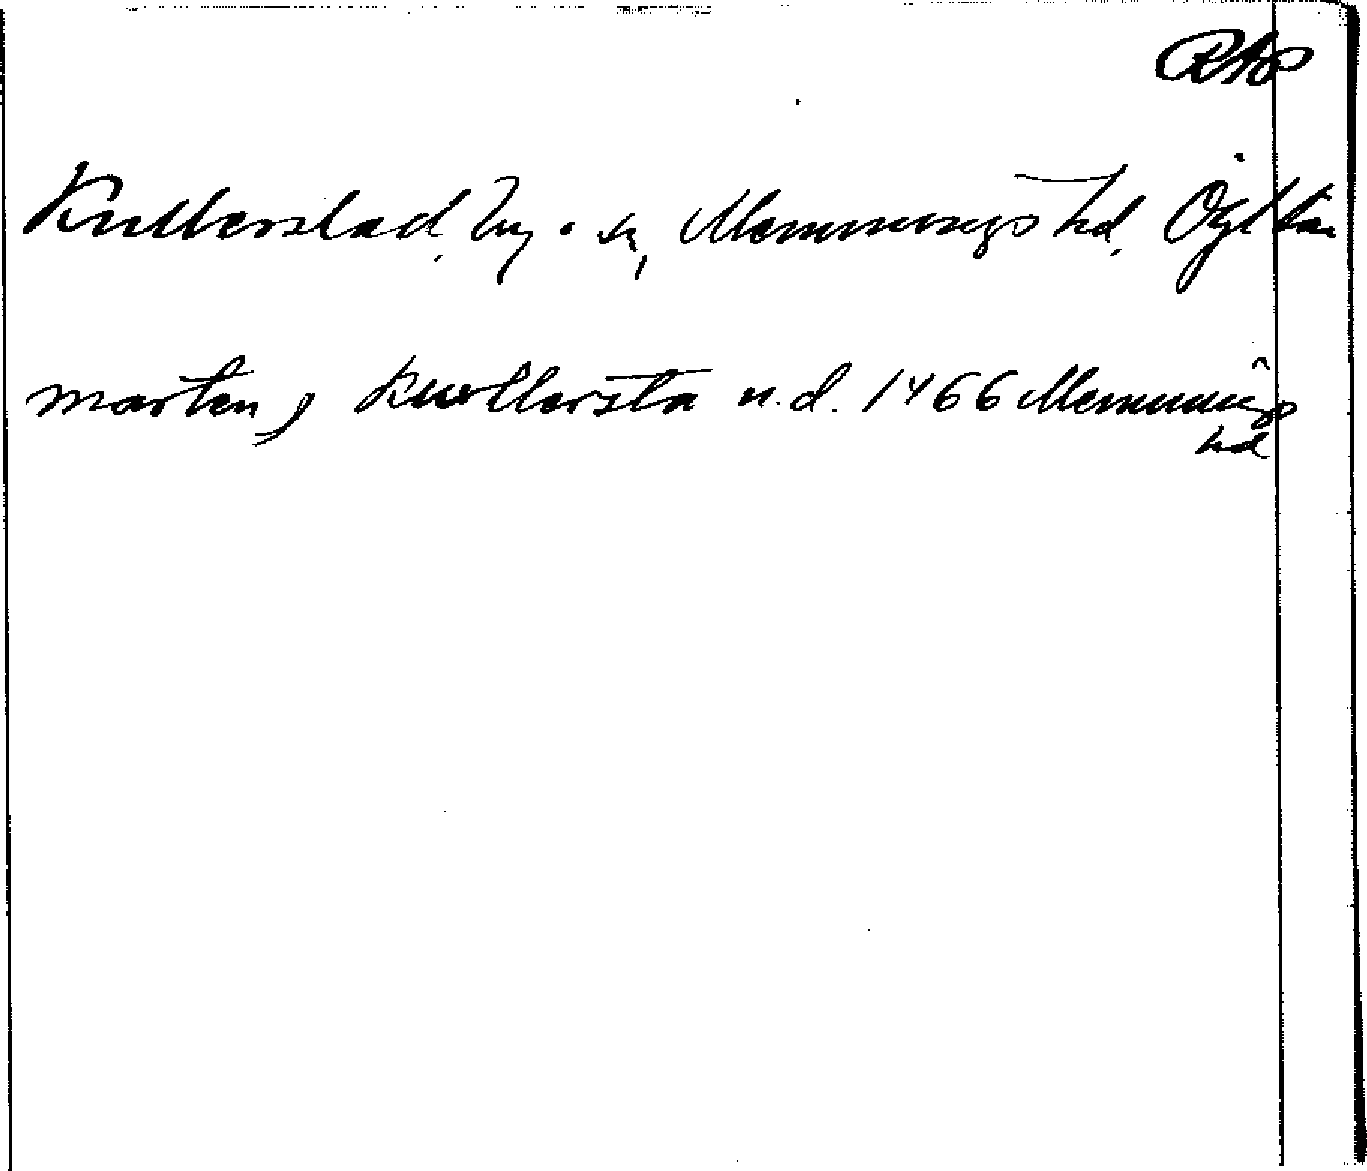 RAP
Kullerstad, by o. sn, Memmings hd, Ögl
marten j Kwllersta u.d. 1466 Memmings
hd